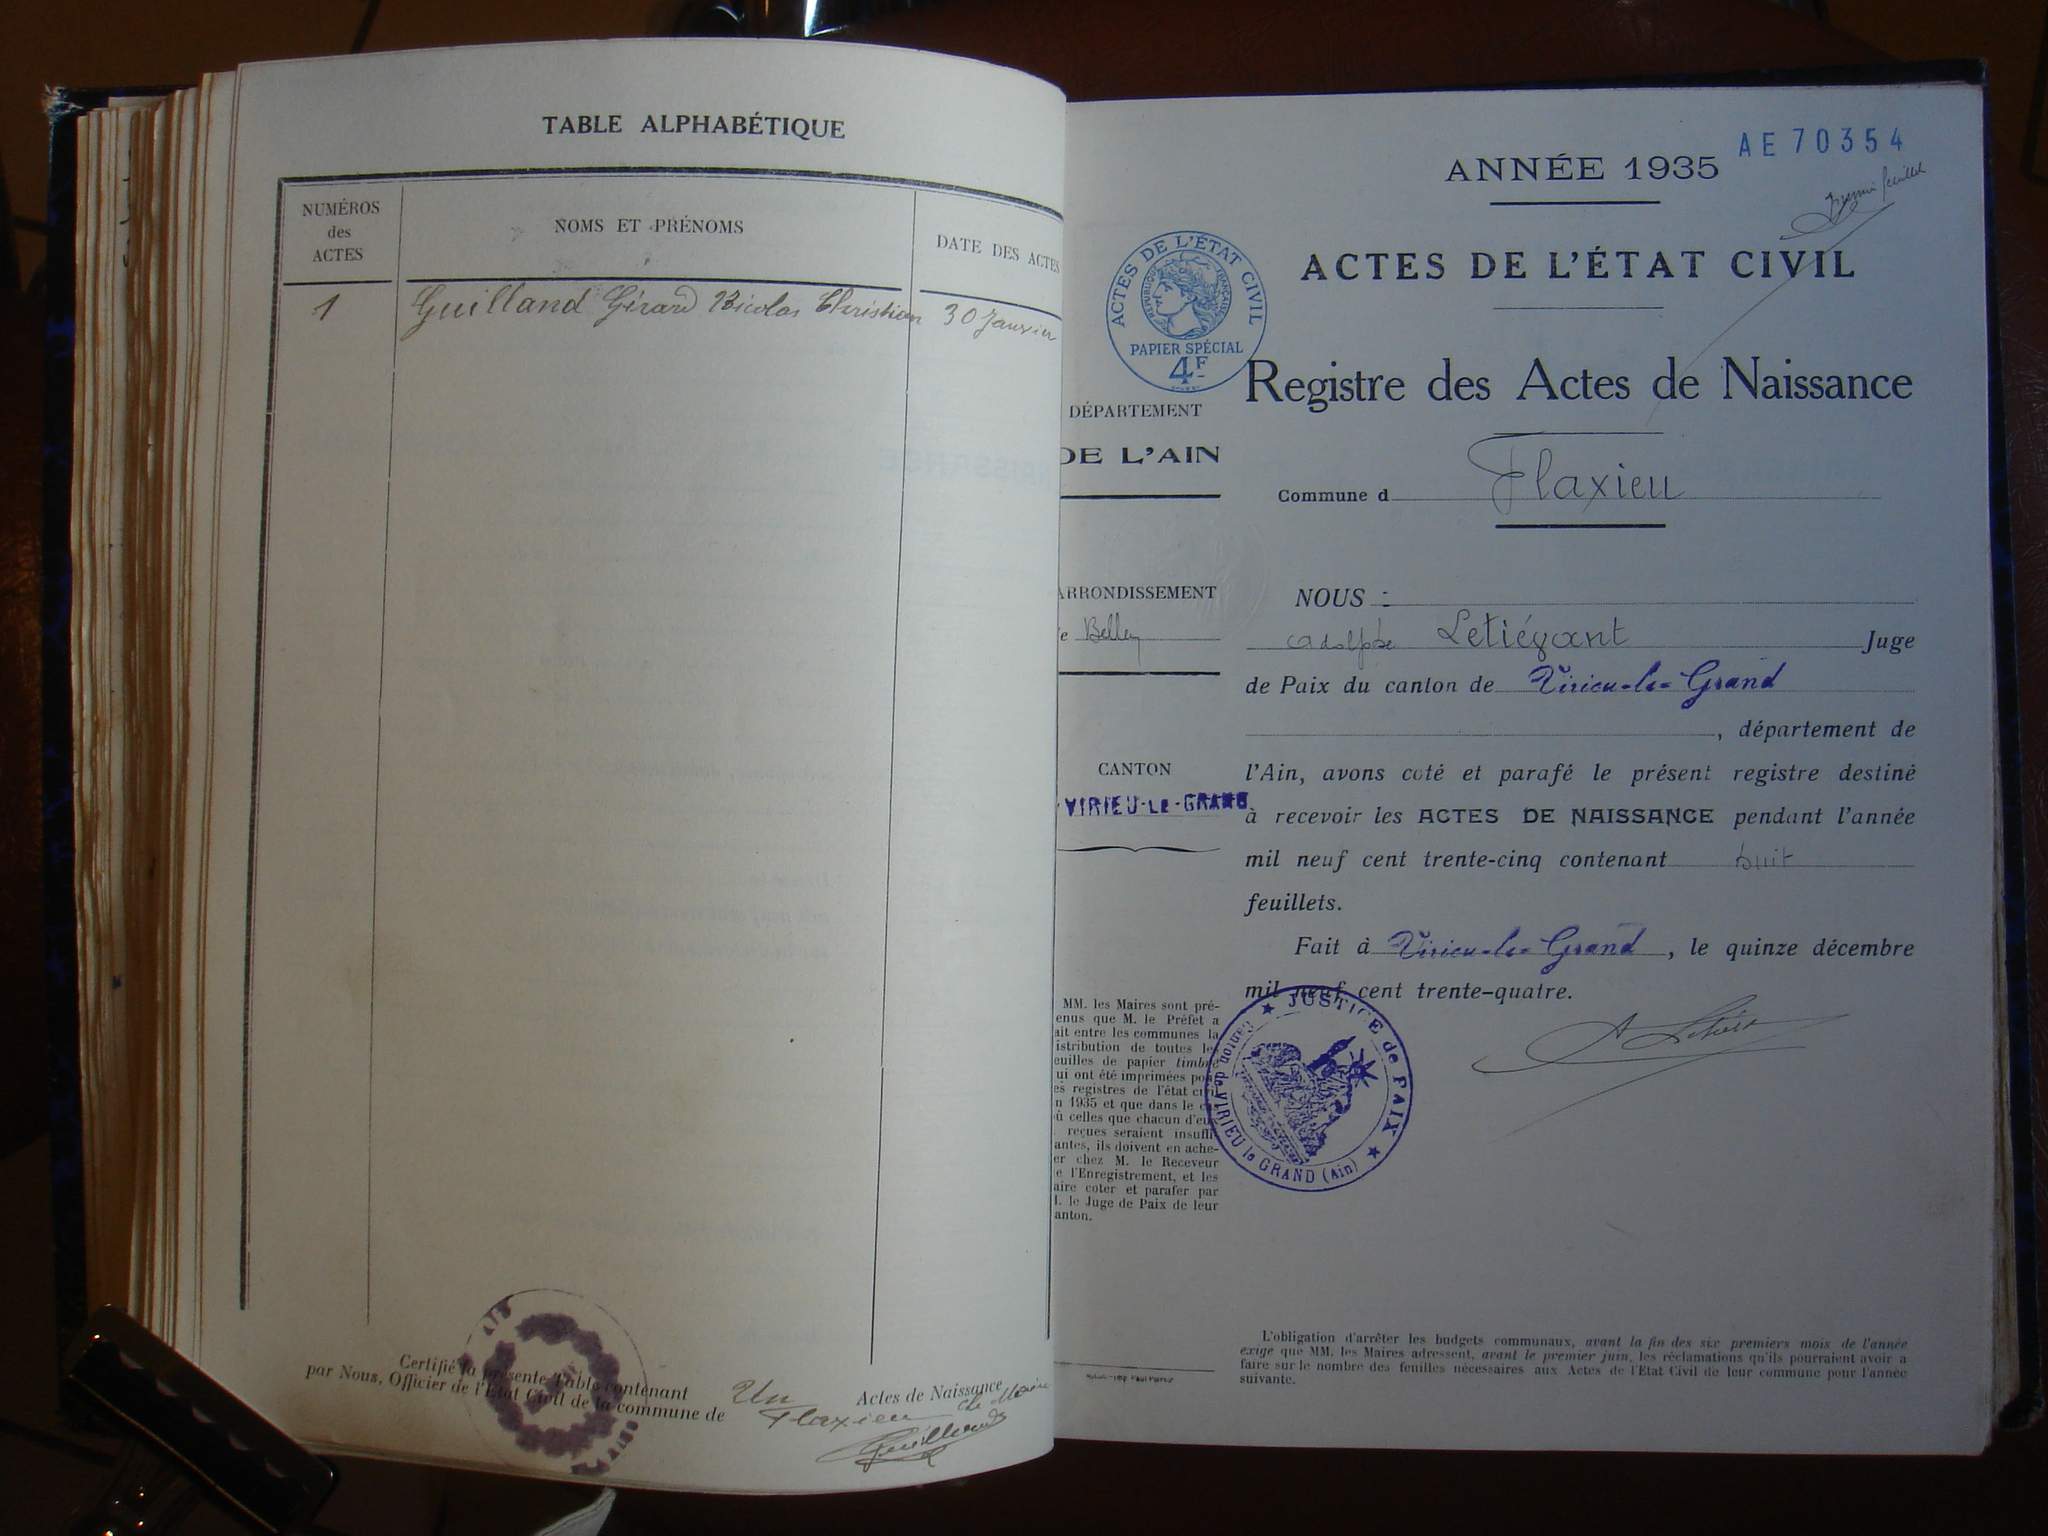 TABLE ALPHABÉTIQUE
NUMÉROS
des
ACTES
NOMS ET PRÉNOMS
DATE DES ACTES
1 Guilland Gérard Nicolas Christian 30 Janvier
Certifié la présente Table contenant Un Actes de Naissance
par Nous, Officier de l'État Civil de la commune de Flaxieu
Le Maire
AE 70354
ANNÉE 1935
Premier feuillet
ACTES DE L'ÉTAT CIVIL
ACTES DE L'ÉTAT CIVIL
RÉPUBLIQUE FRANÇAISE
PAPIER SPÉCIAL
4F
Registre des Actes de Naissance
DÉPARTEMENT
DE L'AIN
Commune d Flaxieu
ARRONDISSEMENT
Belley
CANTON
VIRIEU-LE-GRAND
NOUS :
Adolphe Letiévant Juge
de Paix du canton de Virieu-le-Grand
, département de
l'Ain, avons coté et parafé le présent registre destiné
à recevoir les ACTES DE NAISSANCE pendant l'année
mil neuf cent trente-cinq contenant huit
feuillets.
Fait à Virieu-le-Grand, le quinze décembre
mil neuf cent trente-quatre.
JUSTICE de PAIX
Canton de VIRIEU le GRAND (Ain)
MM. les Maires sont pré-
enus que M. le Préfet a
ait entre les communes la
istribution de toutes le
euilles de papier timbré
ui ont été imprimées pou
es registres de l'état civ
n 1935 et que dans le c
ù celles que chacun d'eu
reçues seraient insuffi
antes, ils doivent en ache-
er chez M. le Receveur
e l'Enregistrement, et les
aire coter et parafer par
. le Juge de Paix de leur
anton.
L'obligation d'arrêter les budgets communaux, avant la fin des six premiers mois de l'année
exige que MM. les Maires adressent, avant le premier juin, les réclamations qu'ils pourraient avoir a
faire sur le nombre des feuilles nécessaires aux Actes de l'Etat Civil de leur commune pour l'année
suivante.